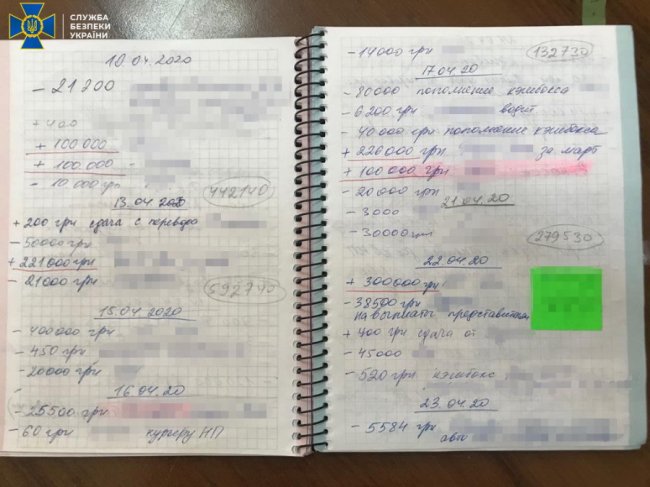 СЛУЖБА
БЕЗПЕКИ
УКРАЇНИ
10.04.2020
- 21200
+ 400
+ 100 000
+ 100.000 -
- 10 000 грн
442140
13.04.2020
+ 200 грн сдача с перевода
- 50000 грн
+ 221 000 грн
- 21000 грн
592740
15.04.2020
- 400000 грн
- 450 грн
- 20000 грн
16.04.20
- 25500 грн
- 60 грн курьеру НП
- 14000 грн
132730
17.04.20
- 80000 пополнение кэшбокса
- 6200 грн
- 40000 грн пополнение кэшбокса
+ 226000 грн за март
+ 100 000 грн
- 20000 грн
21.04.20
- 3000
- 30000 грн
279530
22.04.20
+ 300000 грн
- 38500 грн
на выплаты представителям
+ 400 грн сдача от
- 45000
- 520 грн кэшбокс
23.04.20
- 5584 грн
авто